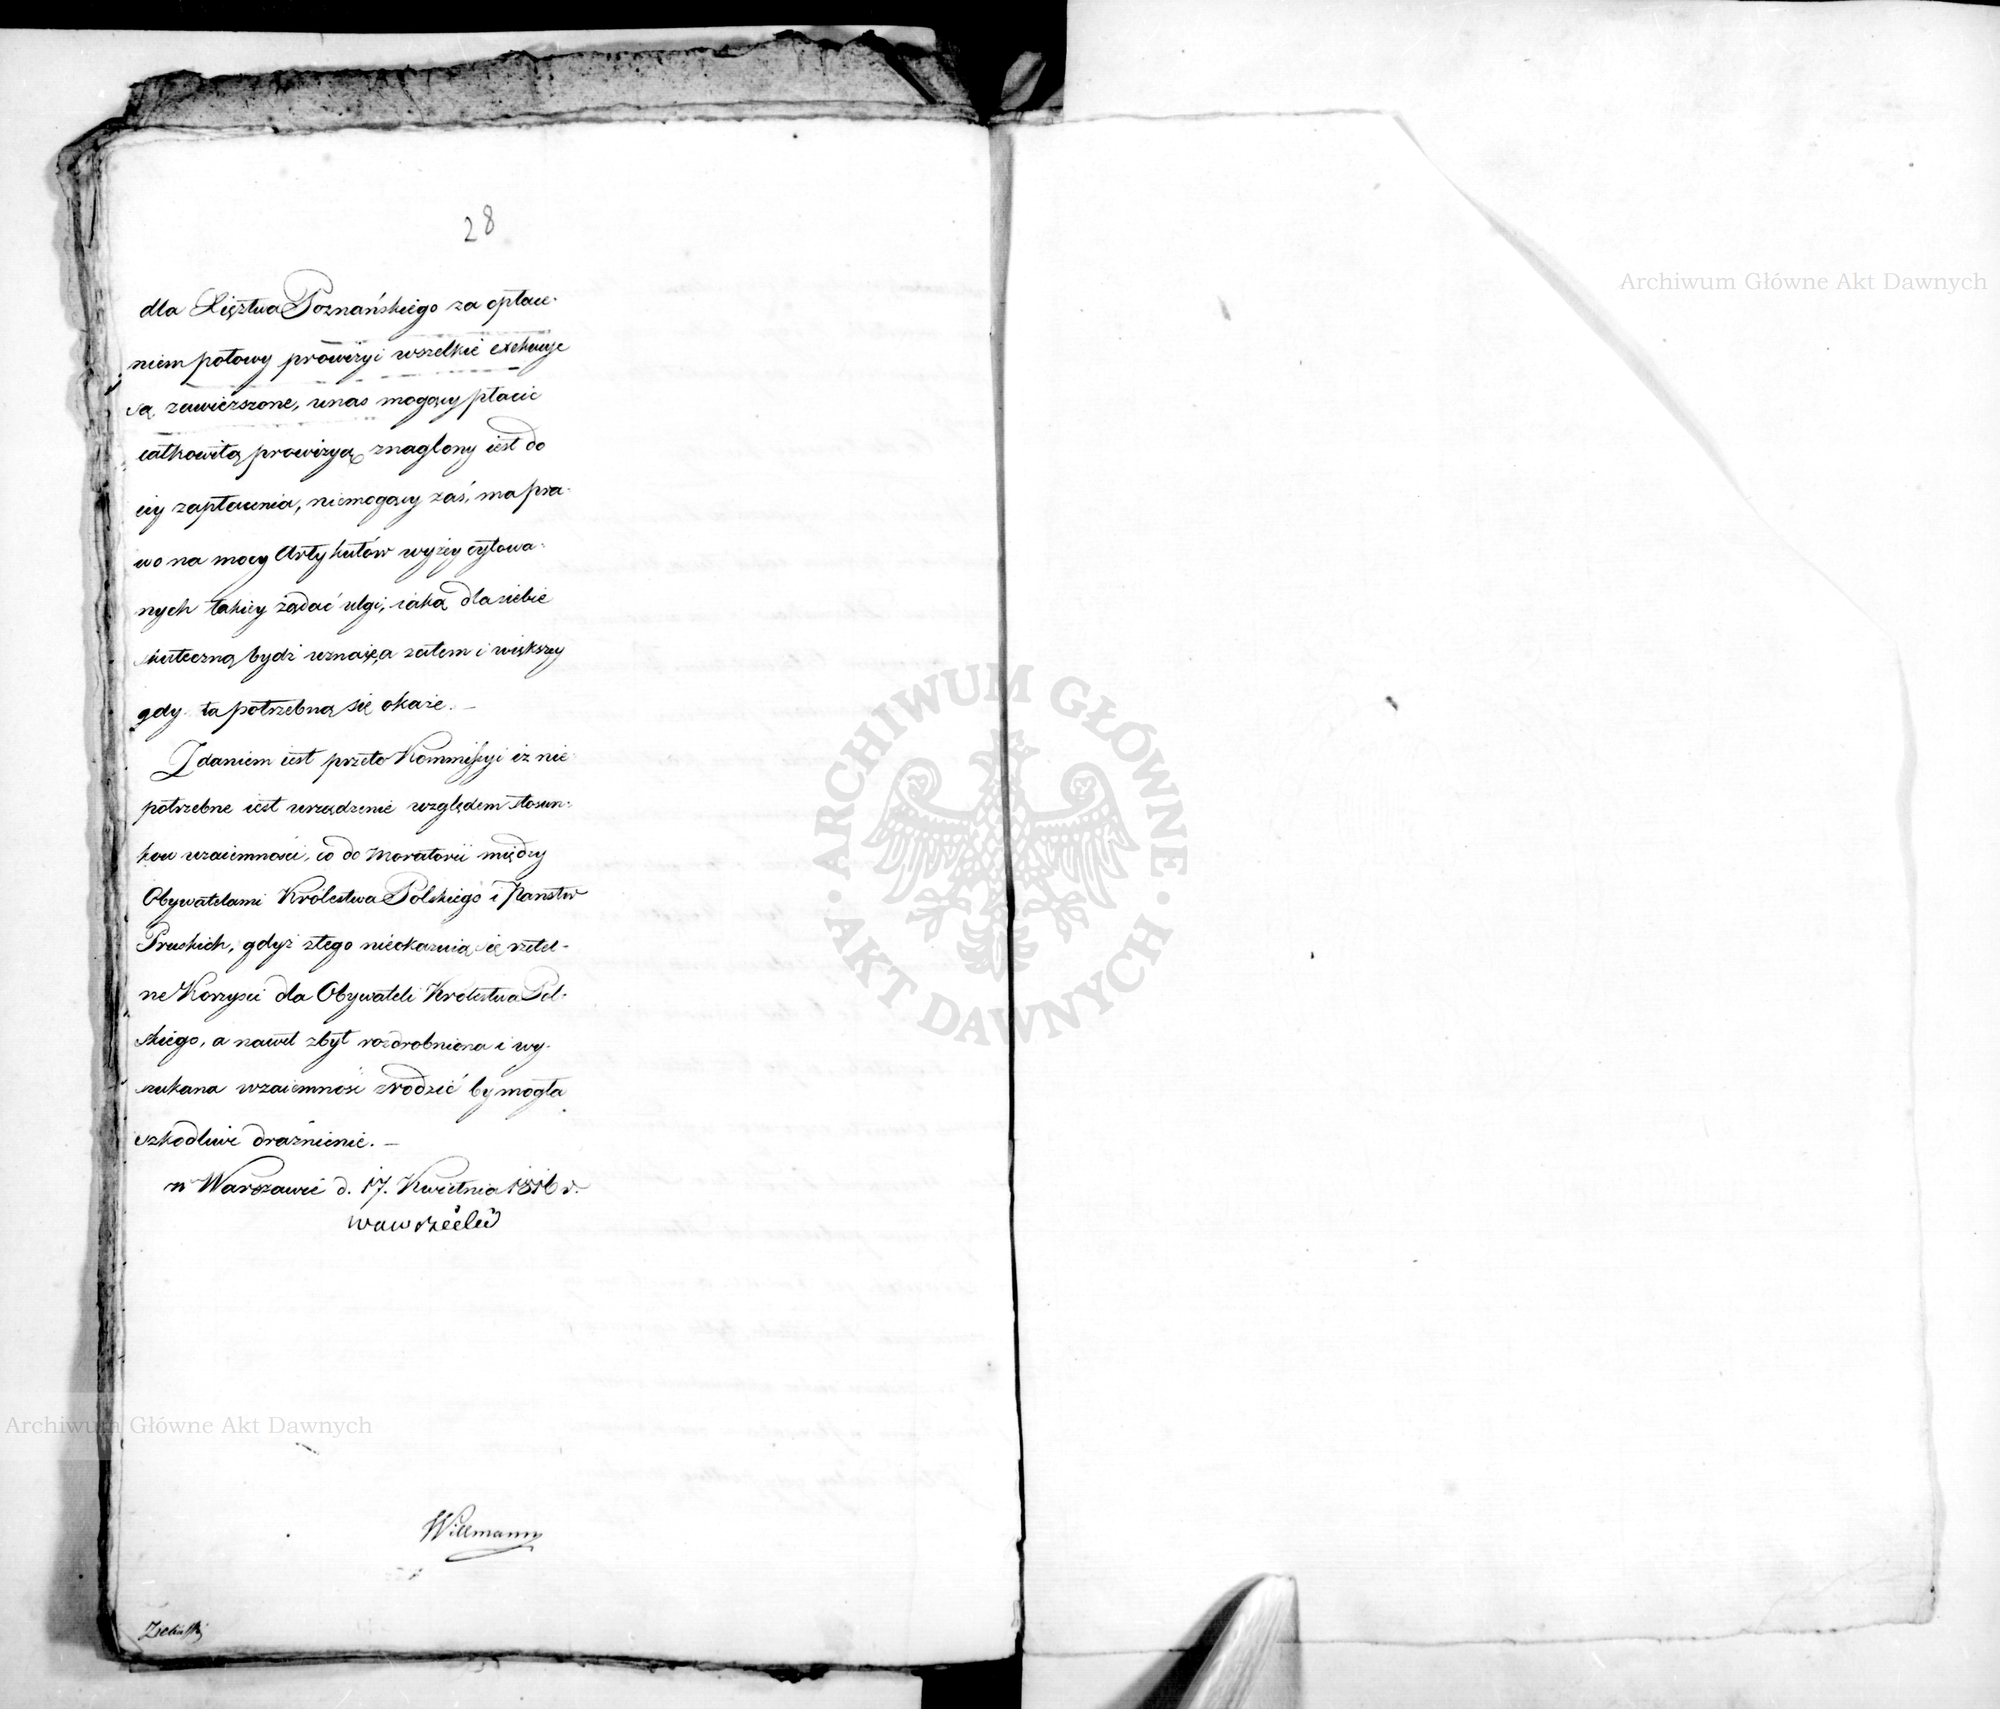 28
dla Xięztwa Poznańskiego za opłace-
niem połowy prowizyi wszelkie exekucye
są zawieszone, unas mogący płacić
całkowitą prowizyą, znaglony iest do
iey zapłacenia, niemogący zaś, ma pra-
wo na mocy Artykułów wyżey cytowa-
nych takiey żądać ulgi, iaką dla siebie
skuteczną bydź uznaię, a zatem i większey
gdy ta potrzebną się okaże. —
Zdaniem iest przeto Kommissyi iż nie-
potrzebne iest urządzenie względem stosun-
kow wzaiemności, co do Moratorii między
Obywatelami Królestwa Polskiego i Panstw
Pruskich, gdyż ztego nieokazuią się rzetel-
ne Korzyści dla Obywateli Królestwa Pol-
skiego, a nawet zbyt rozdrobniona i wy-
szukana wzaiemność zrodzić by mogła
szkodliwe drażnienie. —
w Warszawie d. 17. Kwietnia 1816 r.
Wawrzecki
Willmann
Archiwum Główne Akt Dawnych
Archiwum Główne Akt Dawnych
ARCHIWUM GŁÓWNE · AKT DAWNYCH ·